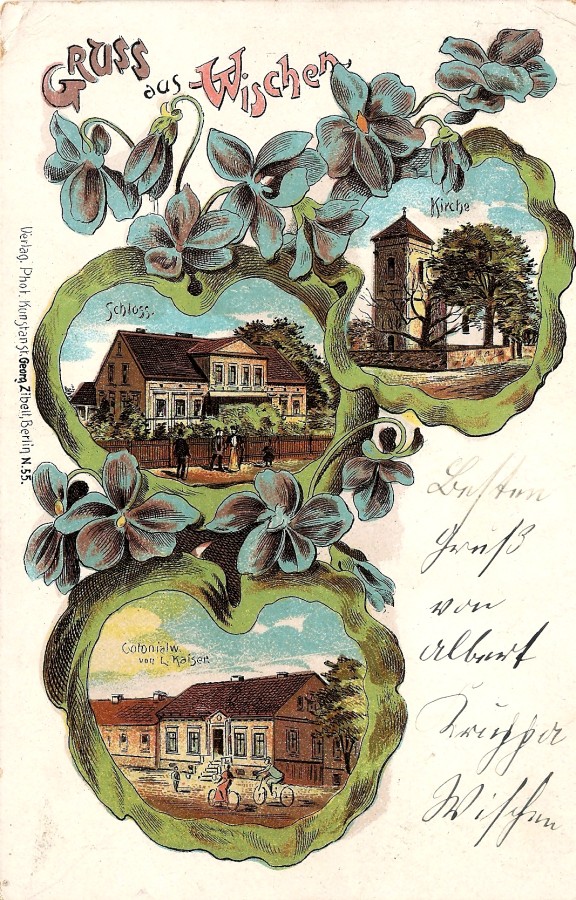 Gruss aus Wischen.
Kirche
Schloss.
Verlag. Phot. Kunstanst. Georg Zibell, Berlin N.55.
Colonialw.
von L. Kaiser.
Besten
Gruß
von
Albert
Kruppa
Wischen